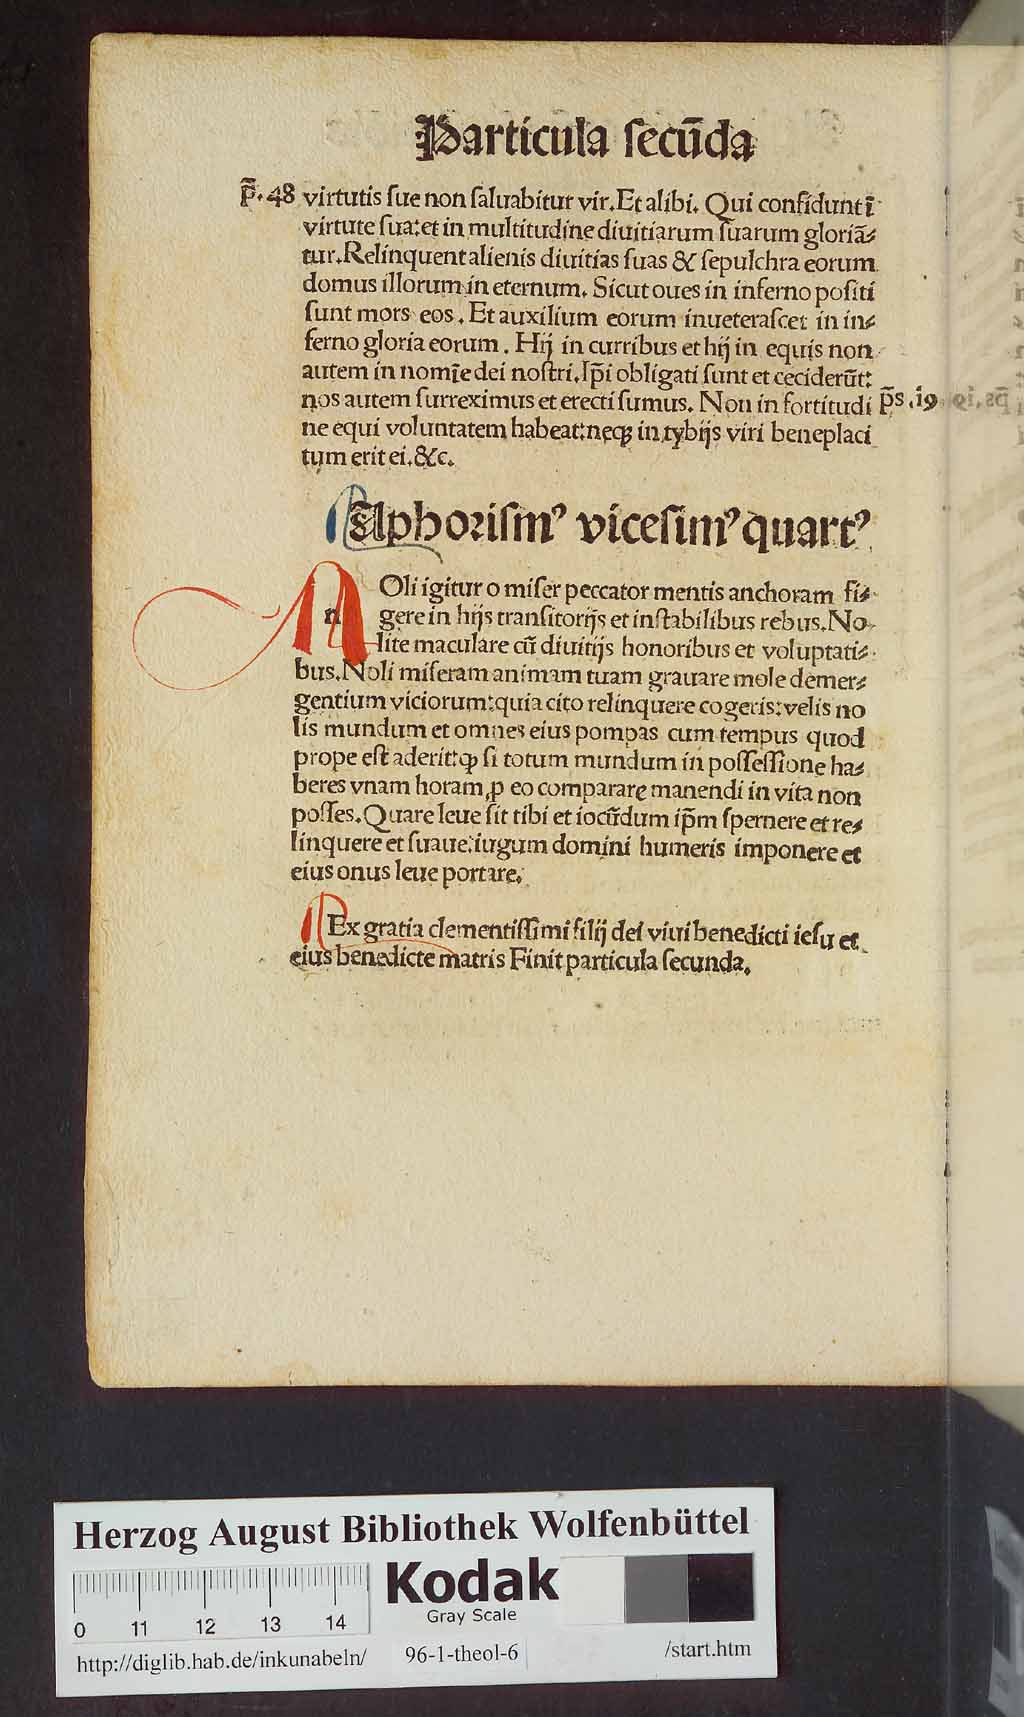 Particula ſecūda
p̄.48 virtutis ſue non ſaluabitur vir. Et alibi. Qui confidunt ī
virtute ſua: et in multitudine diuitiarum ſuarum gloriā⸗
tur. Relinquent alienis diuitias ſuas & ſepulchra eorum
domus illorum in eternum. Sicut oues in inferno poſiti
ſunt mors eos. Et auxilium eorum inueteraſcet in in⸗
ferno gloria eorum. Hij in curribus et hij in equis non
autem in nomīe dei noſtri. Ip̄i obligati ſunt et ceciderūt:
nos autem ſurreximus et erecti ſumus. Non in fortitudi p̄s.i9
ne equi voluntatem habeat: neqꝫ in tybijs viri beneplaci
tum erit ei. &c.
Aphoriſmꝰ viceſimꝰ quartꝰ
NOli igitur o miſer peccator mentis anchoram fi⸗
gere in hijs tranſitorijs et inſtabilibus rebus. No
lite maculare cū diuitijs honoribus et voluptati⸗
bus. Noli miſeram animam tuam grauare mole demer⸗
gentium viciorum: quia cito relinquere cogeris: velis no
lis mundum et omnes eius pompas cum tempus quod
prope eſt aderit: ꝙ ſi totum mundum in poſſeſſione ha⸗
beres vnam horam ꝓ eo comparare manendi in vita non
poſſes. Quare leue ſit tibi et iocūdum ip̄m ſpernere et re⸗
linquere et ſuaue: iugum domini humeris imponere et
eius onus leue portare.
Ex gratia clementiſſimi filij dei viui benedicti ieſu et
eius benedicte matris Finit particula ſecunda.
Herzog August Bibliothek Wolfenbüttel
Kodak
Gray Scale
0 11 12 13 14
http://diglib.hab.de/inkunabeln/ 96-1-theol-6 /start.htm